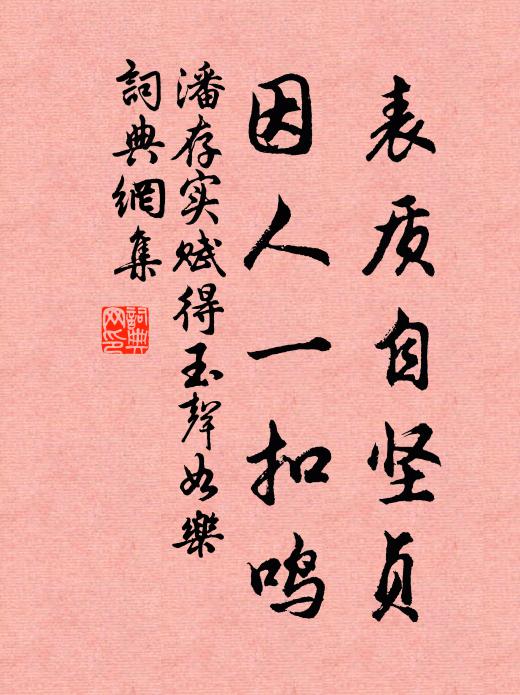 表质自坚贞
因人一扣鸣
潘存实赋得玉声如樂
詞典網集
詞典网印